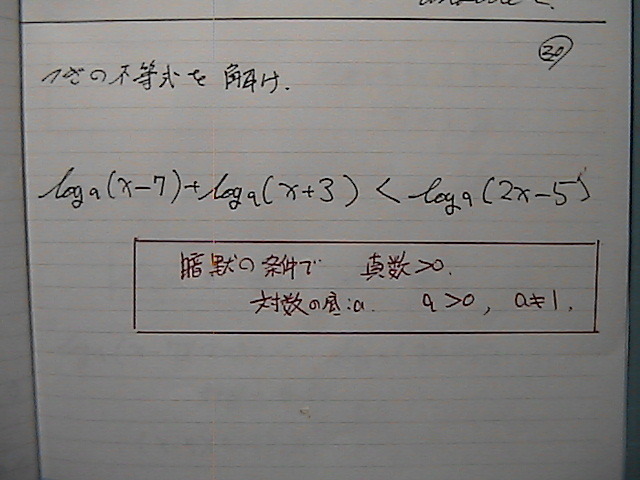 30
次の不等式を解け.
log a (x-7) + log a (x+3) < log a (2x-5)
暗黙の条件で 真数>0.
対数の底:a. a>0, a≠1.